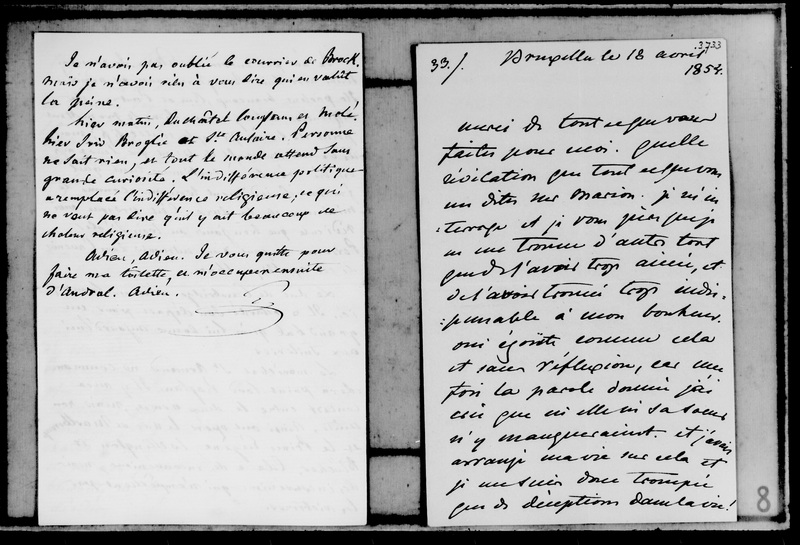 Je n'avois pas oublié le courrier de Brock.
mais je n'avois rien à vous dire qui en valût
la peine.
hier matin, Duchâtel longtems et Molé.
hier soir Broglie et Ste Aulaire. Personne
ne sait rien, et tout le monde attend sans
grande curiosité. L'indifférence politique
a remplacé l'indifférence religieuse; ce qui
ne veut pas dire qu'il y ait beaucoup de
chaleur religieuse.
Adieu, Adieu. Je vous quitte pour
faire ma toilette, et m'occuper ensuite
d'Andral. Adieu.
3733
33./. Bruxelles le 18 avril
1854.
merci de tout ce que vous
faites pour moi. quelle
révélation que tout ce que vous
me dites sur Marion. je m'in
:terroge et je vous jure que je
ne me trouve d'autre tort
que de l'avoir trop aimée, et
de l'avoir trouvée trop indis-
:pensable à mon bonheur.
oui égoïste comme cela
et sans réflexion, car une
fois la parole donnée j'ai
cru que ni elle ni sa soeur
n'y manqueraient. et j'avais
arrangé ma vie sur cela et
je me suis donc trompée
que de déceptions dans la vie!
8